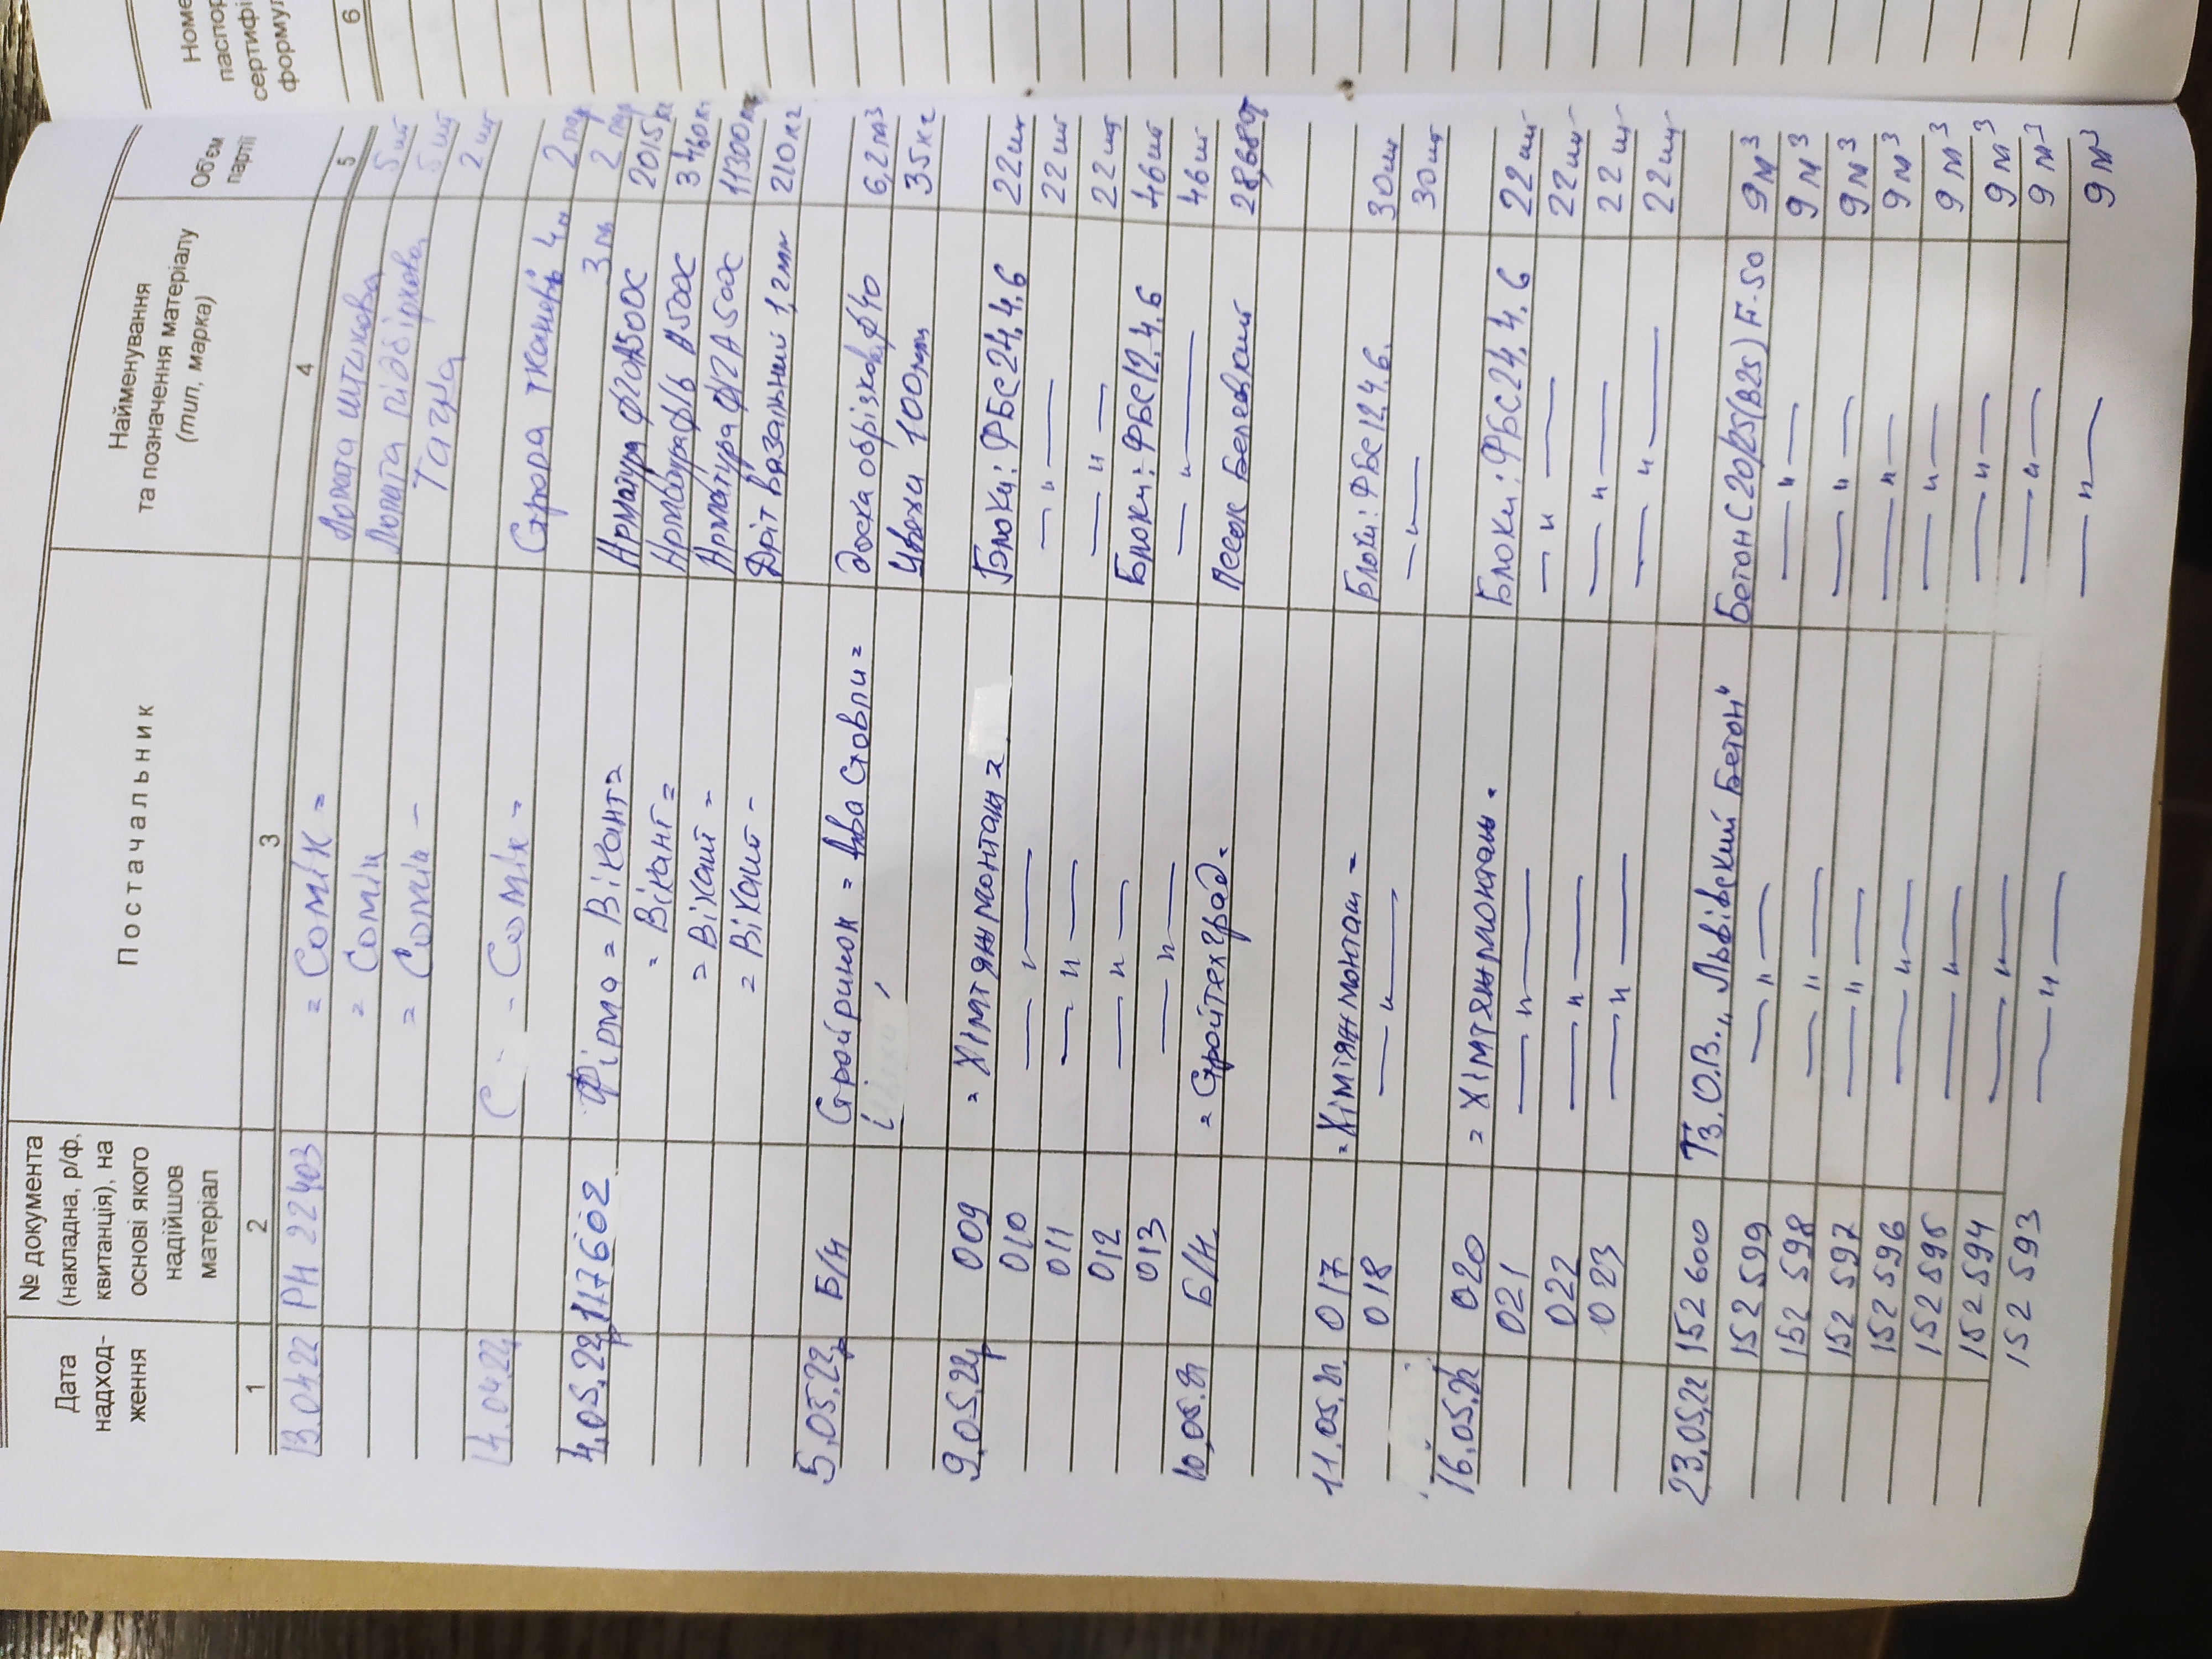 Дата надход-ження
№ документа (накладна, р/ф, квитанція), на основі якого надійшов матеріал
Постачальник
Найменування та позначення матеріалу (тип, марка)
Об'єм партії
1 2 3 4 5 6
13.04.22 РН 22403 = Comik = Лопата штикова 5 шт
= Comik Лопата підбіркова 5 шт
= Comik - Тачка 2 шт
14.04.22 - Comix - Стропа тканева 4м 2 пар
3м 2 пар
4.05.22р 117602 Фірма = Вікант = Арматура ф20А500С 2015 кг
= Вікант = Арматура ф16 А500С 3460 кг
= Вікант = Арматура ф12А500С 11300 кг
= Вікант - Дріт вязальний 1,2мм 210 кг
5.05.22р Б/Н Стройринок = Два Стовпи = доска обрізкова ф40 6,2 м3
Цвяхи 100мм 35 кг
9.05.22р 009 = Хімтяжмонтаж = Блоки: ФБС 24.4.6 22 шт
010 — " — — " — 22 шт
011 — " — — " — 22 шт
012 — " — Блоки: ФБС 12.4.6 46 шт
013 — " — — " — 46 шт
10.05.22 Б/Н. = Стройтехград. Песок Беляевский 28,68т
11.05.22 017 = Хімтяжмонтаж = Блоки: ФБС 12.4.6. 30 шт
018 — " — — " — 30 шт
16.05.22 020 = Хімтяжмонтаж. Блоки: ФБС 24.4.6 22 шт
021 — " — — " — 22 шт
022 — " — — " — 22 шт
023 — " — — " — 22 шт
23.05.22 152 600 Тз.О.В. „Львівский Бетон" Бетон С20/25(В25) F-50 9 м3
152 599 — " — — " — 9 м3
152 598 — " — — " — 9 м3
152 597 — " — — " — 9 м3
152 596 — " — — " — 9 м3
152 595 — " — — " — 9 м3
152 594 — " — — " — 9 м3
152 593 — " — — " — 9 м3